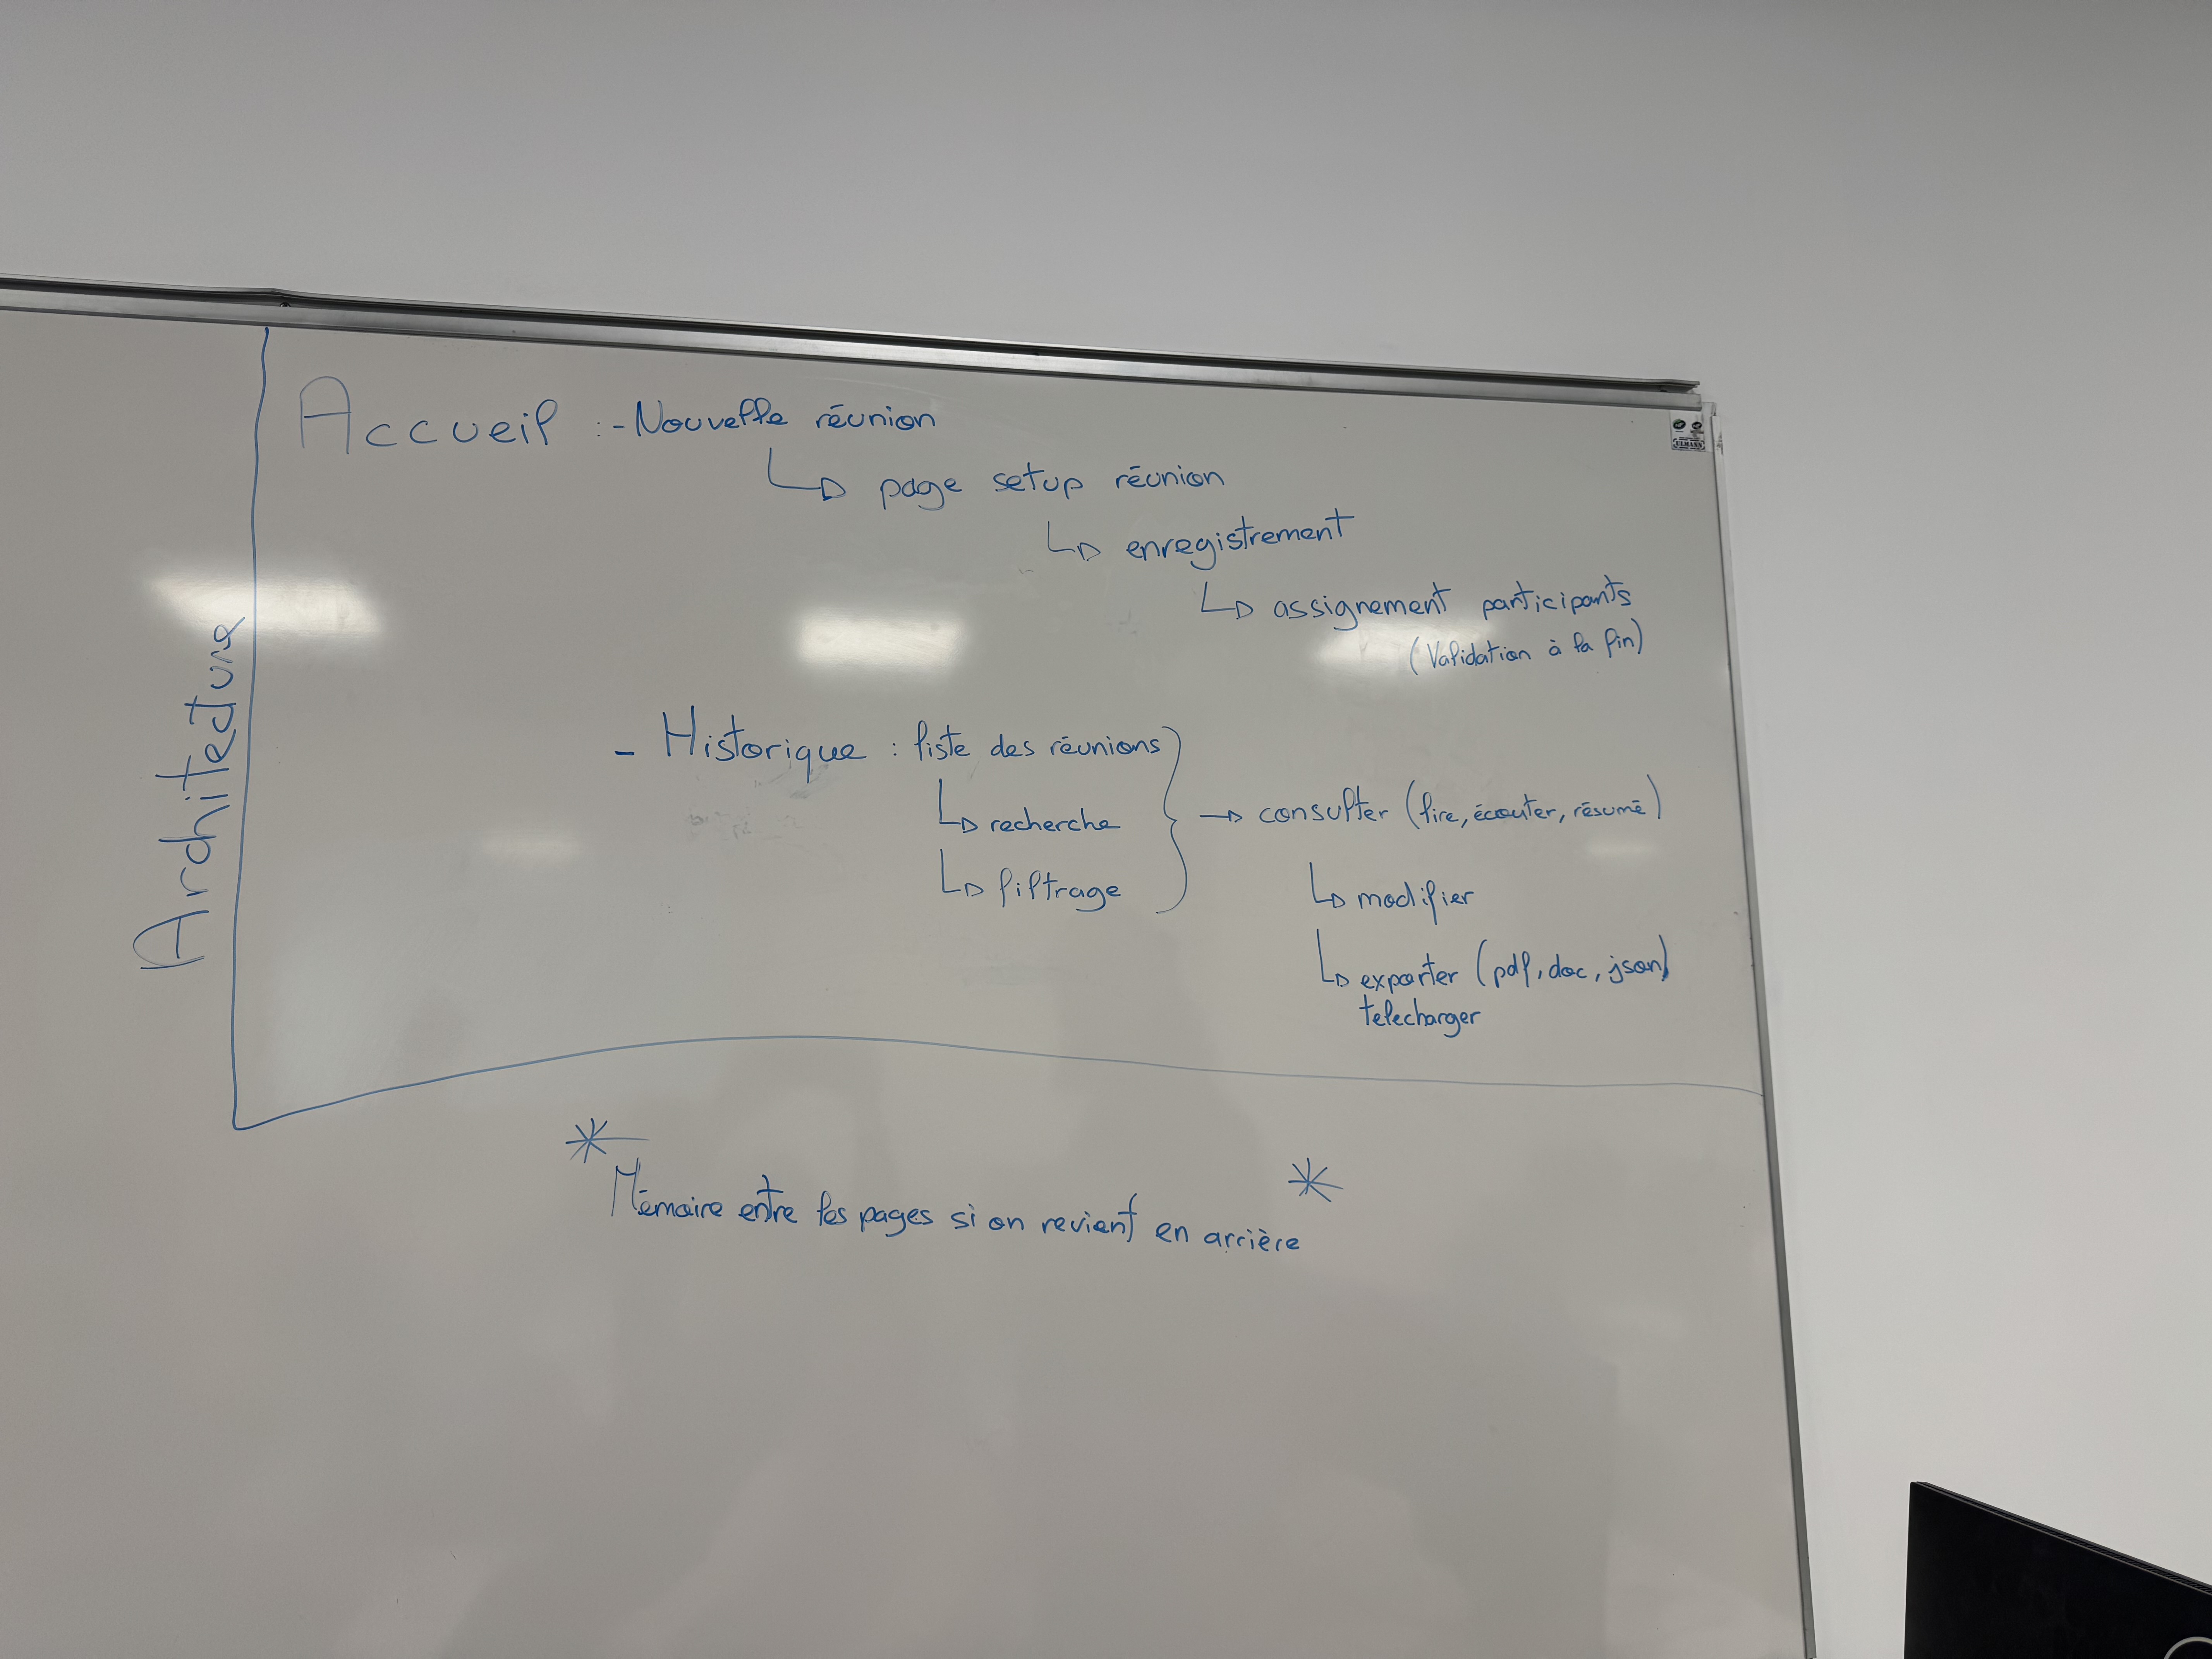 Architecture
Accueil : - Nouvelle réunion
page setup réunion
enregistrement
assignement participants
(Validation à la fin)
- Historique : liste des réunions
recherche
filtrage
→ consulter (lire, écouter, résumé)
modifier
exporter (pdf, doc, json)
telecharger
* Mémoire entre les pages si on revient en arrière *
ULMANN